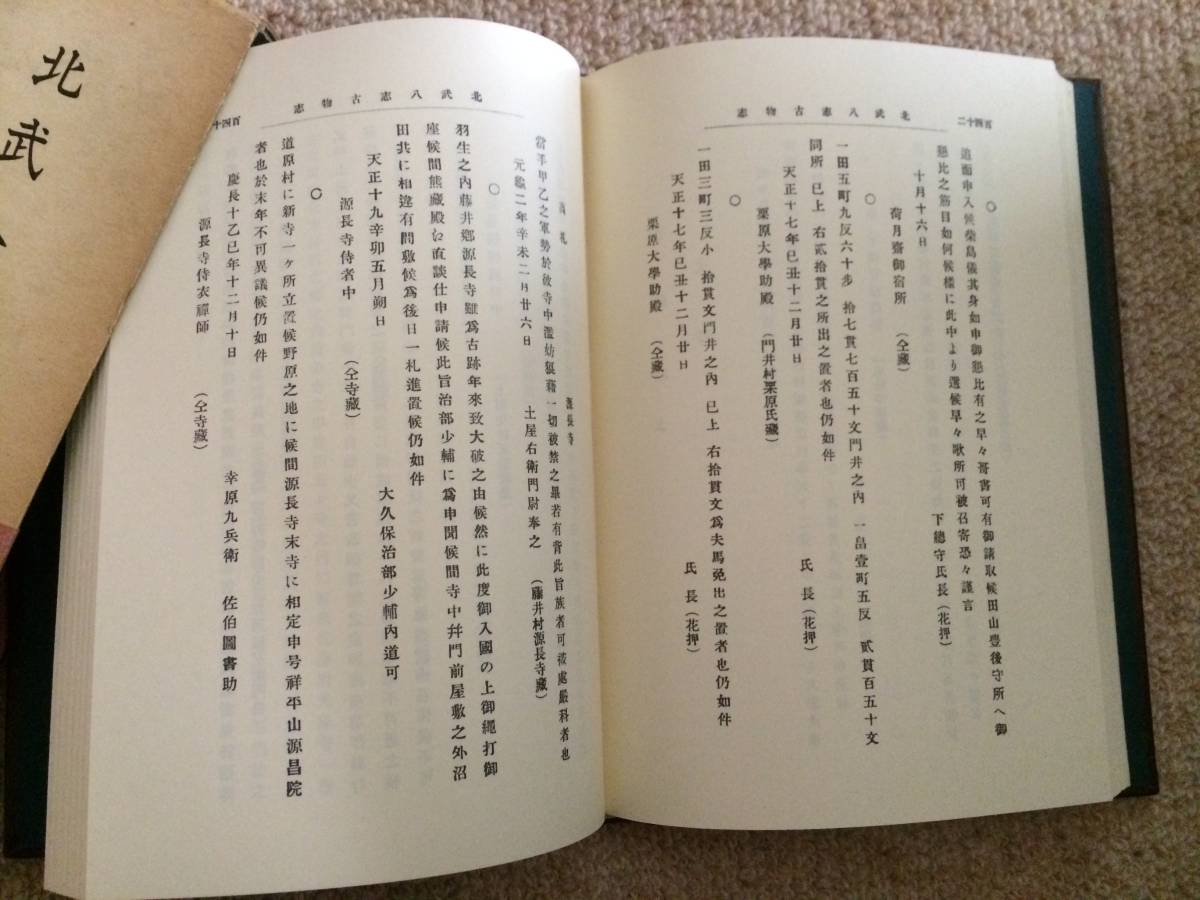 北武
北武八志古物志
百四十二
○
道而申入候柴島儀其身如申御懇比有之早々哥書可有御請取候田山豊後守所へ御
懇比之筋目如何候樣に此中より選候早々歌所可被召寄恐々謹言
十月十六日 下總守氏長(花押)
荷月齋御宿所 (仝藏)
○
一田五町九反六十步 拾七貫七百五十文門井之內 一畠壹町五反 貳貫百五十文
同所 已上 右貳拾貫之所出之置者也仍如件
天正十七年己丑十二月廿日 氏長(花押)
栗原大學助殿 (門井村栗原氏藏)
○
一田三町三反小 拾貫文門井之內 已上 右拾貫文爲夫馬免出之置者也仍如件
天正十七年己丑十二月廿日 氏長(花押)
栗原大學助殿 (仝藏)
北武八志古物志
百四十
高札 源長寺
當手甲乙之軍勢於敀寺中濫妨狼藉一切被禁之畢若有背此旨族者可被處嚴科者也
元龜二年辛未二月廿六日 土屋右衛門尉奉之 (藤井村源長寺藏)
○
羽生之內藤井鄕源長寺雖爲古跡年來致大破之由候然に此度御入國の上御繩打御
座候間熊藏殿に直談仕申請候此旨治部少輔に爲申聞候間寺中幷門前屋敷之外沼
田共に相違有間敷候爲後日一札進置候仍如件
天正十九辛卯五月朔日 大久保治部少輔內道可
源長寺侍者中 (仝寺藏)
○
道原村に新寺一ヶ所立置候野原之地に候間源長寺末寺に相定申号祥平山源昌院
者也於末年不可異議候仍如件
慶長十乙巳年十二月十日 幸原九兵衛 佐伯圖書助
源長寺侍衣禪師 (仝寺藏)